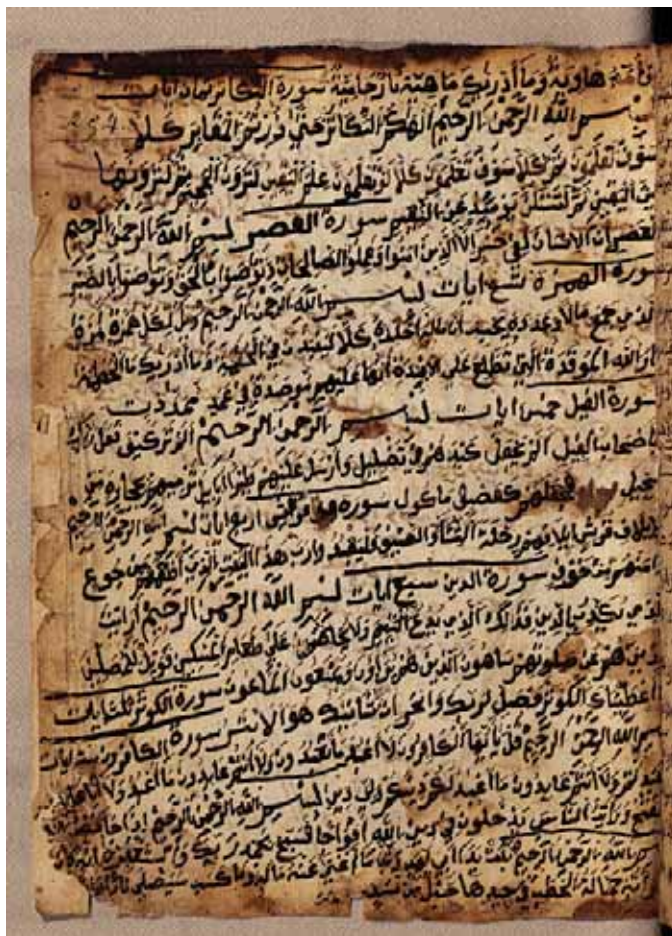 فأمه هاوية وما أدريك ما هيه نار حامية سورة التكاثر ثمان ايات
بسم الله الرحمن الرحيم الهيكم التكاثر حتى زرتم المقابر كلا
سوف تعلمون ثم كلا سوف تعلمون كلا لو تعلمون علم اليقين لترون الجحيم ثم لترونها
عين اليقين ثم لتسئلن يومئذ عن النعيم سورة العصر بسم الله الرحمن الرحيم
والعصر ان الانسان لفي خسر الا الذين امنوا وعملوا الصالحات وتواصوا بالحق وتواصوا بالصبر
سورة الهمزة تسع ايات بسم الله الرحمن الرحيم ويل لكل همزة لمزة
الذي جمع مالا وعدده يحسب ان ماله اخلده كلا لينبذن في الحطمة وما أدريك ما الحطمة
نار الله الموقدة التي تطلع على الافئدة انها عليهم موصدة في عمد ممددة
سورة الفيل خمس ايات بسم الله الرحمن الرحيم الم تر كيف فعل ربك
باصحاب الفيل الم يجعل كيدهم في تضليل وأرسل عليهم طيرا ابابيل ترميهم بحجارة من
سجيل فجعلهم كعصف ماكول سورة قريش اربع ايات بسم الله الرحمن الرحيم
لايلاف قريش ايلافهم رحلة الشتاء والصيف فليعبدوا رب هذا البيت الذي أطعمهم من جوع
وامنهم من خوف سورة الدين سبع ايات بسم الله الرحمن الرحيم ارايت
الذي يكذب بالدين فذلك الذي يدع اليتيم ولا يحاض على طعام المسكين فويل للمصلين
الذين هم عن صلوتهم ساهون الذين هم يراون ويمنعون الماعون سورة الكوثر ثلث ايات
انا اعطيناك الكوثر فصل لربك وانحر ان شانئك هو الابتر سورة الكافرون ست ايات
بسم الله الرحمن الرحيم قل يايها الكافرون لا اعبد ما تعبدون ولا أنتم عابدون ما اعبد ولا أنا عابد
ما عبدتم ولا أنتم عابدون ما اعبد لكم دينكم ولي دين بسم الله الرحمن الرحيم إذا جاء نصر الله
والفتح ورأيت الناس يدخلون في دين الله أفواجا فسبح بحمد ربك واستغفره انه كان
بسم الله الرحمن الرحيم تبت يدا ابي لهب وتب ما أغنى عنه ماله وما كسب سيصلى نارا
وامراته حمالة الحطب في جيدها حبل من مسد